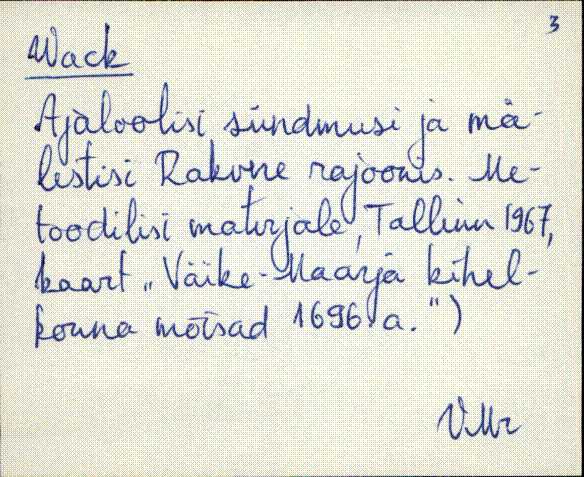 3
Wack
Ajaloolisi sündmusi ja mä-
lestisi Rakvere rajoonis. Me-
toodilisi materjale, Tallinn 1967,
kaart „Väike-Maarja kihel-
konna mõisad 1696. a.")
VMr